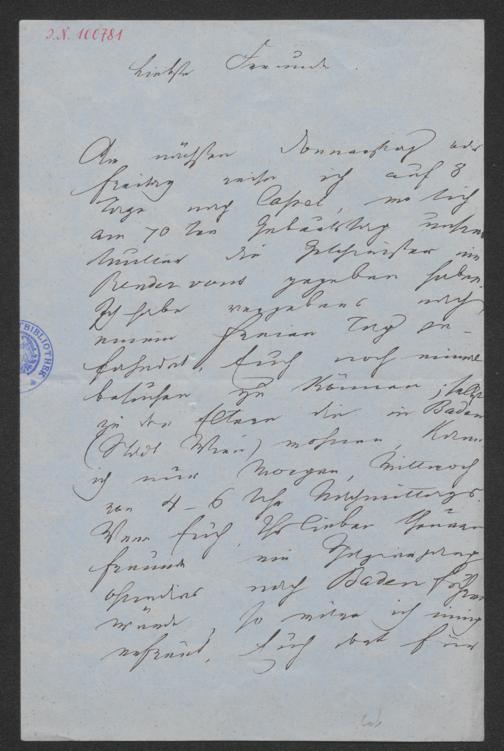 I.N. 100781
Liebste Freunde
An nächsten Donnerstag oder
Freitag reise ich auf 8
Tage nach Cassel, wo sich
am 70ten Geburtstag unserer
Mutter die Geschwister ein
Rendez-vous gegeben haben.
Ich habe vergebens nach
einem freien Tag ge-
fahndet, Euch noch einmal
besuchen zu können; selbst
zu den Eltern die in Baden
(Stadt Wien) wohnen, kann
ich nur Morgen, Mittwoch
von 4–6 Uhr Nachmittags.
Wenn Euch, Ihr lieben theuren
Freunde ein Spaziergang
ohnedies nach Baden führen
würde, so wäre ich innig
erfreut, Euch dort für
BIBLIOTHEK